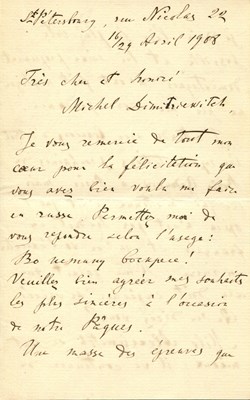 St Pétersbourg, rue Nicolas 22
16/29 Avril 1908
Très cher et honoré
Michel Dimitriewitch,
Je vous remercie de tout mon
cœur pour la félicitation que
vous avez bien voulu me faire
en russe. Permettez moi de
vous répondre selon l'usage:
Во истину воскресе!
Veuillez bien agréer mes souhaits
les plus sincères à l'occasion
de notre Pâques.
Une masse des épreuves que